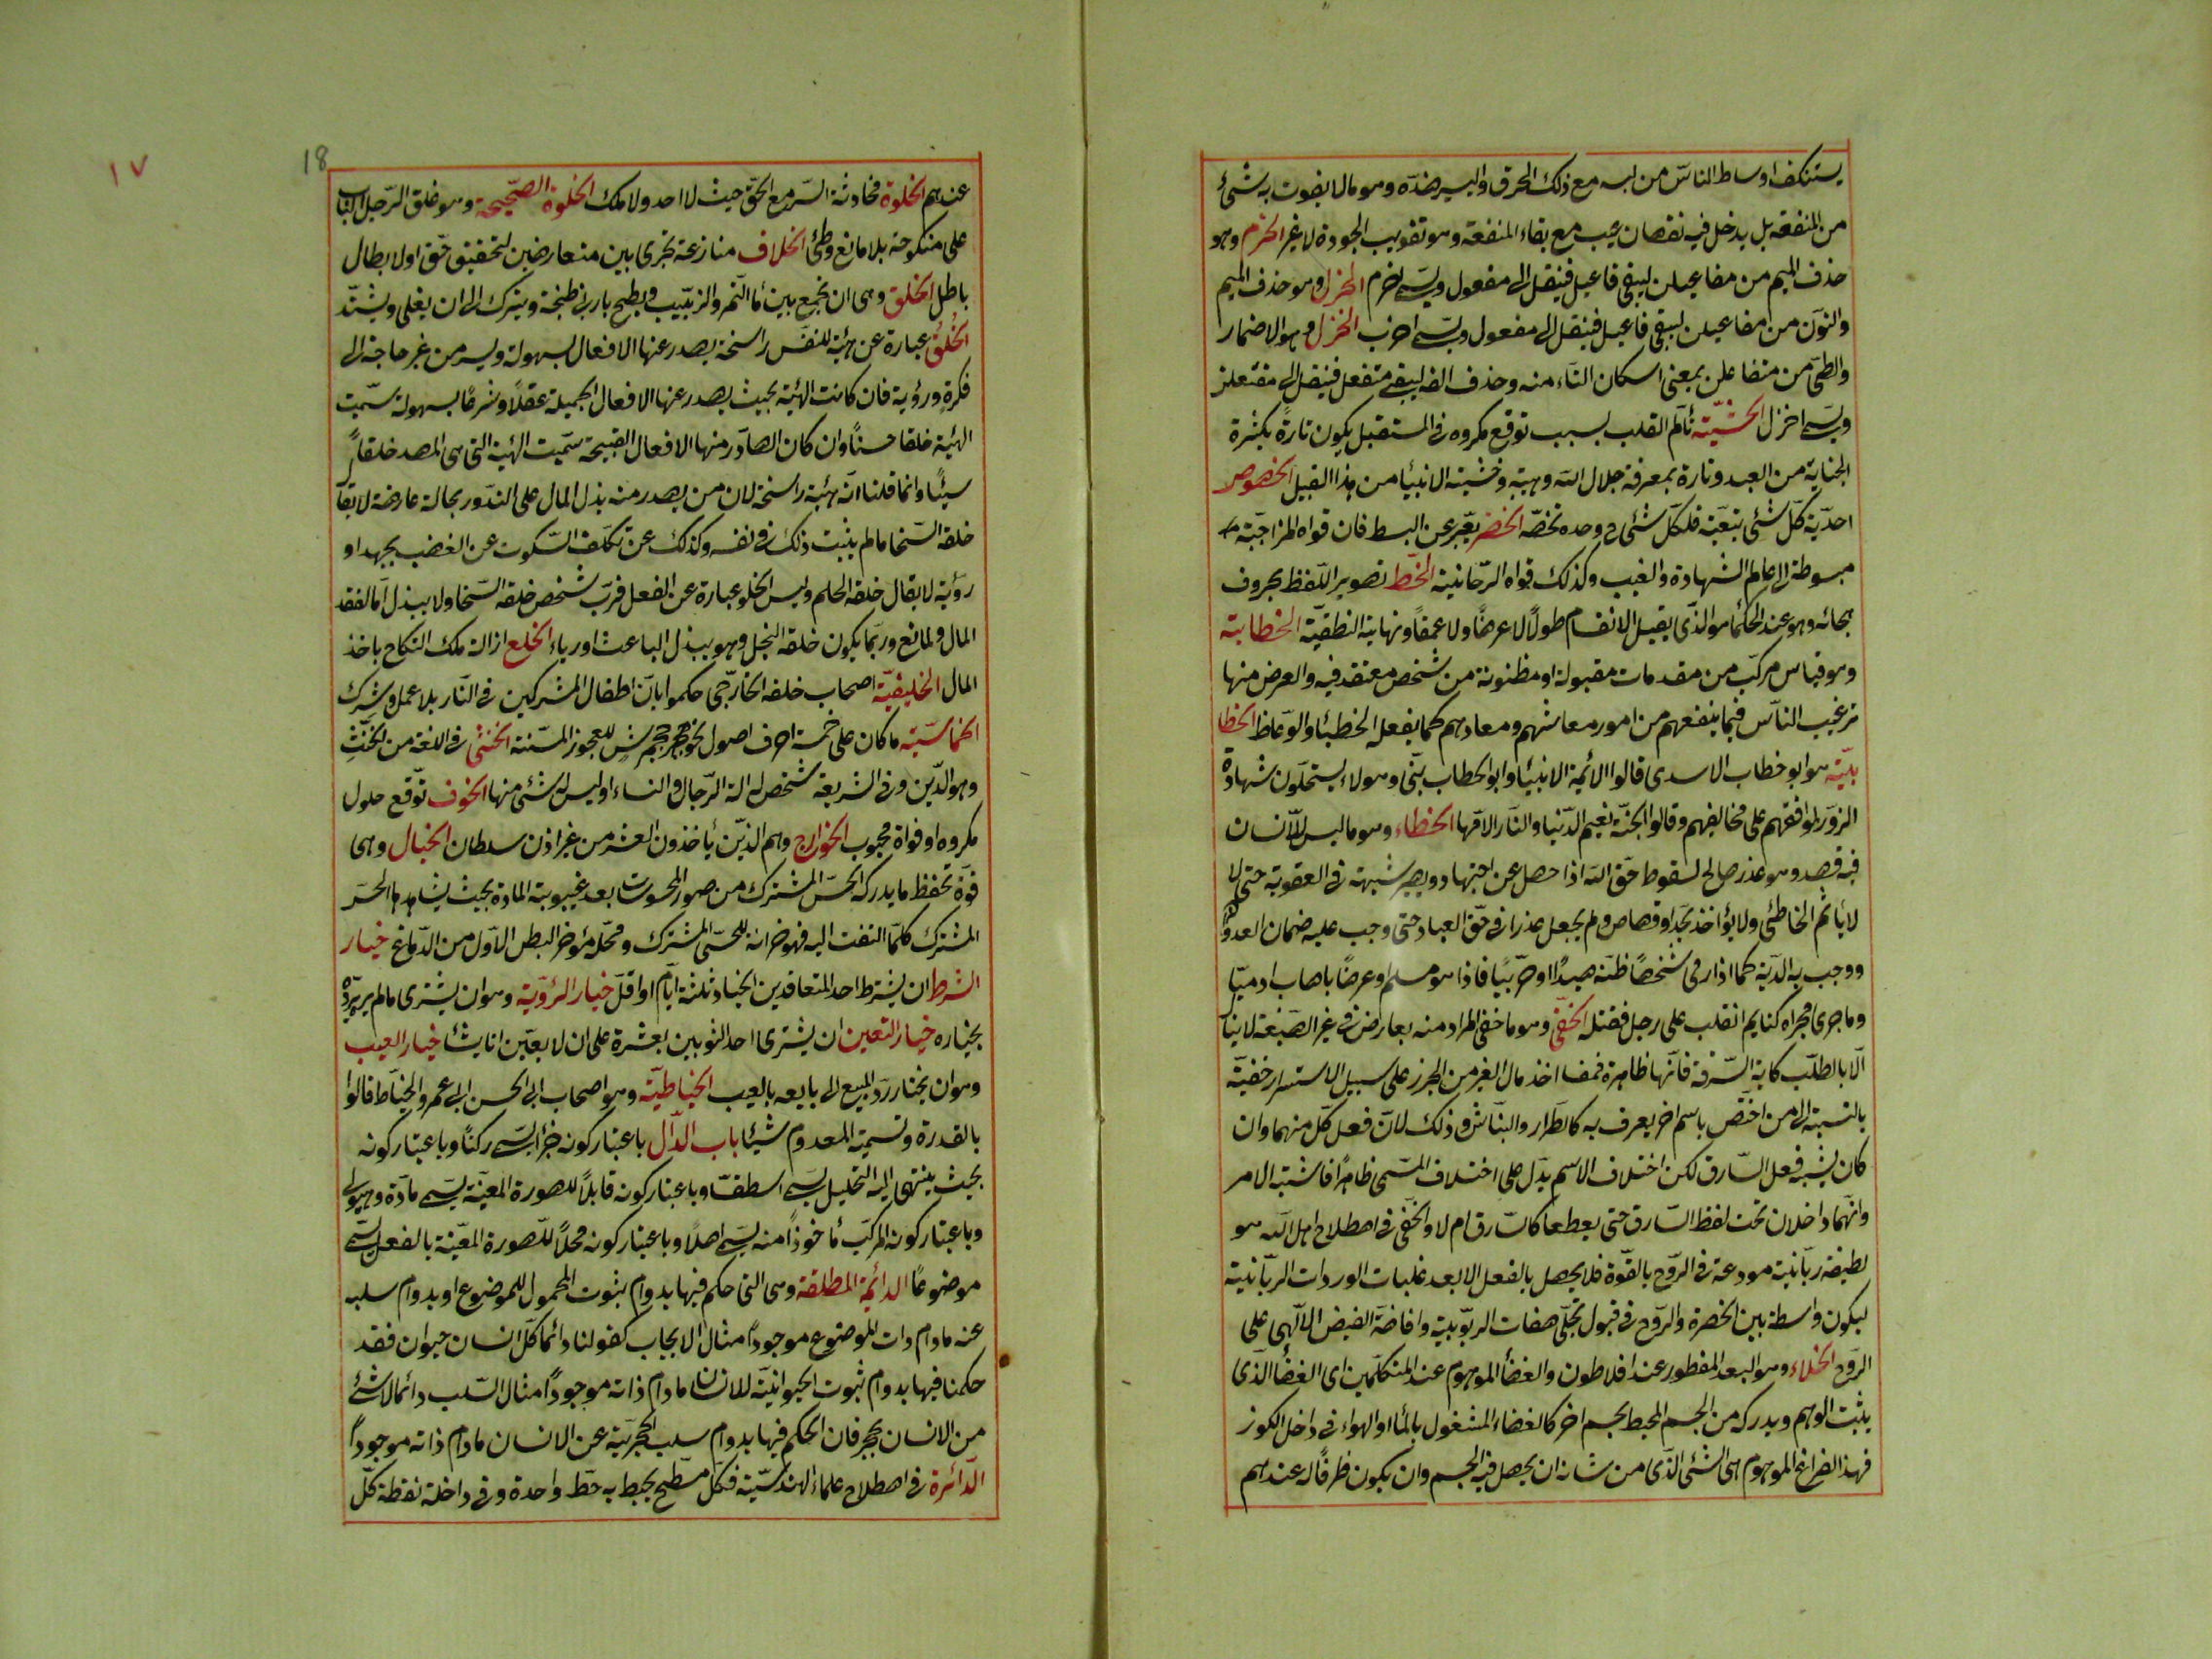 يستنكف اوساط الناس من لبسه مع ذلك الخرق واليسير ضده وهو مالا يفوت به شئ
من المنفعة بل يدخل فيه نقصان عيب مع بقاء المنفعة وهو تفويت الجودة لا غير الخرم وهو
حذف الميم من مفاعيلن ليبقى فاعيلن فينقل الى مفعولن ويسمى اخرم الخرب وهو حذف الميم
والنون من مفاعيلن ليبقى فاعيل فينقل الى مفعول ويسمى اخرب الخزل وهو الاضمار
والطى من متفاعلن بمعنى اسكان التاء منه وحذف الفه ليبقى متفعلن فينقل الى مفتعلن
ويسمى اخزل الخشية تألم القلب بسبب توقع مكروه فى المستقبل يكون تارة بكثرة
الجناية من العبد وتارة بمعرفة جلال الله وهيبته وخشية الانبياء من هذا القبيل الخصوص
احدية كل شئ بتعينه فلكل شئ وحدة تخصه الخضر يعبر عن البسط فان قواه المزاجية
مبسوطة الى عالم الشهادة والغيب وكذلك قواه الروحانية الخط تصوير اللفظ بحروف
هجائه وهو عند الحكماء هو الذى يقبل الانقسام طولا لا عرضا ولا عمقا ونهايته النقطة الخطابة
وهو قياس مركب من مقدمات مقبولة او مظنونة من شخص معتقد فيه والغرض منها
ترغيب الناس فيما ينفعهم من امور معاشهم ومعادهم كما يفعله الخطباء والوعاظ الخطا
بية هو ابو خطاب الاسدى قالوا الائمة الانبياء وابو الخطاب نبى وهولاء يستحلون شهادة
الزور لموافقهم على مخالفهم وقالوا الجنة نعيم الدنيا والنار الامها الخطاء وهو ما ليس للانسان
فيه قصد وهو عذر صالح لسقوط حق الله اذا حصل عن اجتهاد ويصير شبهة فى العقوبة حتى لا
لا يأثم الخاطئ ولا يؤاخذ بحد او قصاص ولم يجعل عذرا فى حق العباد حتى وجب عليه ضمان العدوان
ووجب به الدية كما اذا رمى شخصا ظنه صيدا او حربيا فاذا هو مسلم او غرضا فاصاب ادميا
وما جرى مجراه كنايم انقلب على رجل فقتله الخفى وهو ما خفى المراد منه بعارض فى غير الصيغة لا ينال
الا بالطلب كاية السرقة فانها ظاهرة فيمن اخذ مال الغير من الحرز على سبيل الاستسرار خفية
بالنسبة الى من اختص باسم اخر يعرف به كالطرار والنباش وذلك لان فعل كل منهما وان
كان يشبه فعل السارق لكن اختلاف الاسم يدل على اختلاف المسمى ظاهرا فاشتبه الامر
وانهما داخلان تحت لفظ السارق حتى يقطعا كالسارق ام لا والخفى فى اصطلاح اهل الله هو
لطيفة ربانية مودعة فى الروح بالقوة فلا يحصل بالفعل الا بعد غلبات الواردات الربانية
ليكون واسطة بين الحضرة والروح فى قبول تجلى صفات الربوبية وافاضة الفيض الالهى على
الروح الخلاء وهو البعد المفطور عند افلاطون والفضأ الموهوم عند المتكلمين اى الفضأ الذى
يثبت الوهم ويدركه من الجسم المحيط بجسم اخر كالفضاء المشغول بالمأ او الهواء فى داخل الكوز
فهذا الفراغ الموهوم هى الشئ الذى من شانه ان يحصل فيه الجسم وان يكون ظرفا له عندهم
18
١٧
عندهم الخلوة محادثة السر مع الحق حيث لا احد ولا ملك الخلوة الصحيحة وهو غلق الرجل الباب
على منكوحة بلا مانع وطئ الخلاف منازعة تجرى بين متعارضين لتحقيق حق او لابطال
باطل الخلق وهى ان تجمع بين مأ التمر والزبيب ويطبخ بادنى طبخة ويترك الى ان يغلى ويشتد
الخلق عبارة عن هيئة للنفس راسخة يصدر عنها الافعال بسهولة ويسر من غير حاجة الى
فكرة ورؤية فان كانت الهيئة بحيث يصدر عنها الافعال الجميلة عقلا وشرعا بسهولة سميت
الهيئة خلقا حسنا وان كان الصادر منها الافعال القبيحة سميت الهيئة التى هى المصدر خلقا
سيئا وانما قلنا انه هيئة راسخة لان من يصدر منه بذل المال على الندور بحالة عارضة لا يقال
خلقه السخا ما لم يثبت ذلك فى نفسه وكذلك عن تكلف السكوت عن الغضب بجهد او
رؤية لا يقال خلقه الحلم وليس الخلق عبارة عن الفعل فرب شخص خلقه السخا ولا يبذل اما لفقد
المال او لمانع وربما يكون خلقه البخل وهو يبذل لباعث او رياء الخلع ازالة ملك النكاح باخذ
المال الخليفية اصحاب خلف الخارجى حكموا بان اطفال المشركين فى النار بلا عمل وشرك
الخماسية ما كان على خمسة احرف اصول نحو جحمرش للعجوز المسنة الخنثى فى اللغة من الخنث
وهو اللين وفى الشريعة شخص له الة الرجال والنساء او ليس له شئ منها الخوف توقع حلول
مكروه او فواة محبوب الخوارج وهم الذين يأخذون العشر من غير اذن سلطان الخيال وهى
قوة تحفظ ما يدركه الحس المشترك من صور المحسوسات بعد غيبوبة المادة بحيث يشاهدها الحس
المشترك كلما التفت اليه فهو خزانة للحس المشترك ومحله مؤخر البطن الاول من الدماغ خيار
الشرط ان يشترط احد المتعاقدين الخيار ثلثة ايام او اقل خيار الرؤية وهو ان يشترى ما لم يره ويرده
بخياره خيار التعين ان يشترى احد الثوبين بعشرة على ان لا يعين ايا يشأ خيار العيب
وهو ان يختار رد المبيع الى بايعه بالعيب الخياطية وهو اصحاب ابى الحسن ابى عمرو الخياط قالوا
بالقدرة وتسمية المعدوم شيئا باب الدال باعتبار كونه جزأ يسمى ركنا وباعتبار كونه
بحيث ينتهى اليه التحليل يسمى اسطقسا وباعتبار كونه قابلا للصورة المعينة يسمى مادة وهيولى
وباعتبار كونه المركب مأخوذا منه يسمى اصلا وباعتبار كونه محلا للصورة المعينة بالفعل يسمى
موضوعا الدائمة المطلقة وهى التى حكم فيها بدوام ثبوت المحمول للموضوع او بدوام سلبه
عنه مادام ذات الموضوع موجودا مثال الايجاب كقولنا دائما كل انسان حيوان فقد
حكمنا فيها بدوام ثبوت الحيوانية للانسان مادام ذاته موجودا مثال السلب دائما لا شئ
من الانسان بحجر فان الحكم فيها بدوام سلب الحجرية عن الانسان مادام ذاته موجودا
الدائرة فى اصطلاح علماء الهندسية فكل مسطح يحيط به خط واحدة وفى داخله نقطة كل